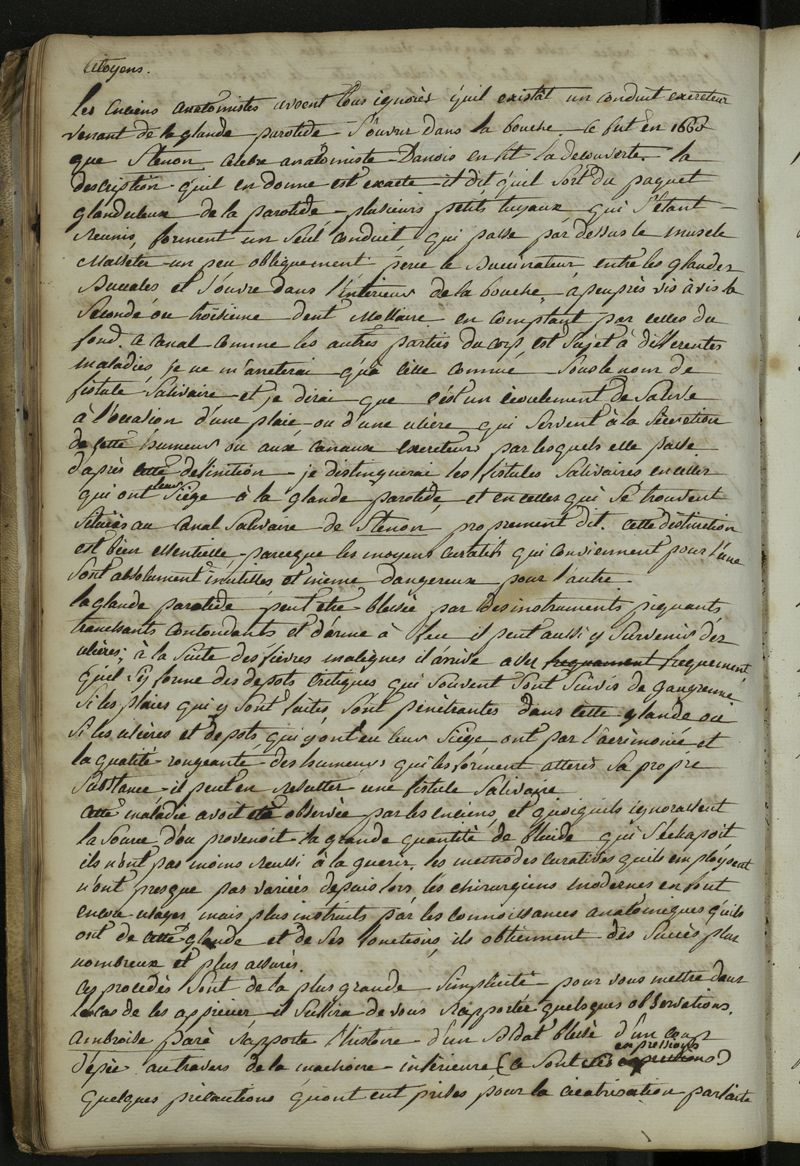 Citoyens.
Les anciens anatomistes avoent tous ignorés qu'il existat un conduit excreteur
venant de la glande parotide s'ouvrir dans la bouche. Ce fut en
que Stenon celebre anatomiste Danois en fit la decouverte. la
description qu'il en donne est exacte il dit qu'il sort du paquet
glanduleux de la parotide plusieurs petits tuyaux qui s'étant
reunis, forment un seul conduit qui passe par dessus le muscle
Masseter un peu obliquement perce le Buccinateur entre les glandes
Buccales et s'ouvre dans l'interieur de la bouche, à peu près vis à vis la
seconde ou troisieme dent Mollaire en comptant par celles du
fond. ce canal comme les autres parties du corp est sujet à differentes
maladies, je ne m'arreterai qu'à celle connue sous le nom de
fistule salivaire et je dirai que c'est un écoulement de salive
à l'occasion d'une plaie ou d'une ulcère qui servent à la sécretion
de cette humeur ou aux canaux excreteurs par lesquels elle passe.
d'après cette definition je distinguerai les fistules salivaires en celles
qui ont leur siège à la glande parotide, et en celles qui se trouvent
situées au canal salivaire de Stenon proprement dit. cette distinction
est bien essentielle parceque les moyens curatifs qui conviennent pour l'une
sont absolument inutilles et même dangereux pour l'autre.
la glande parotide peut etre blessée par des instruments piquants
tranchants contondants et d'arme à feu il peut aussi y survenir des
ulcères; à la suite des fievres malignes il arrive assez frequament frequement
qu'il s'y forme des depots critiques qui souvent sont suivis de gangrenne
si les plaies qui y sont faites sont pénétrantes dans cette glande ou
si les ulcères et depots qui y ont eu leur siège ont par l'âcrimonie et
la qualité rongeante des humeurs qui les forment alteré sa propre
substance il peut en resulter une fistule salivaire
cette maladie avoit été observée par les anciens, et quoiqu'ils ignorassent
la source d'où provenoit la grande quantité de fluide qui s'echapoit
ils n'ont pas moins reussi à la guerir. les methodes curatives qu'ils employoent
n'ont presque pas variées depuis lors les chirurgiens modernes en font
encore usages, mais plus instruits par les connoissances anatomiques qu'ils
ont de cette glande et de ses fonctions, ils obtiennent des succès plus
nombreux et plus assurés.
ces procedés sont de la plus grande simplicité pour vous mettre dans
le cas de les apprecier il suffira de vous rapporter quelques observations.
Ambroise paré rapporte l'histoire d'un soldat blessé d'un coup
d'épée au travers de la machoire inferieure (ce sont ses expressions)
quelques précautions qu'ont eut prises pour la cicatrisation parfaite